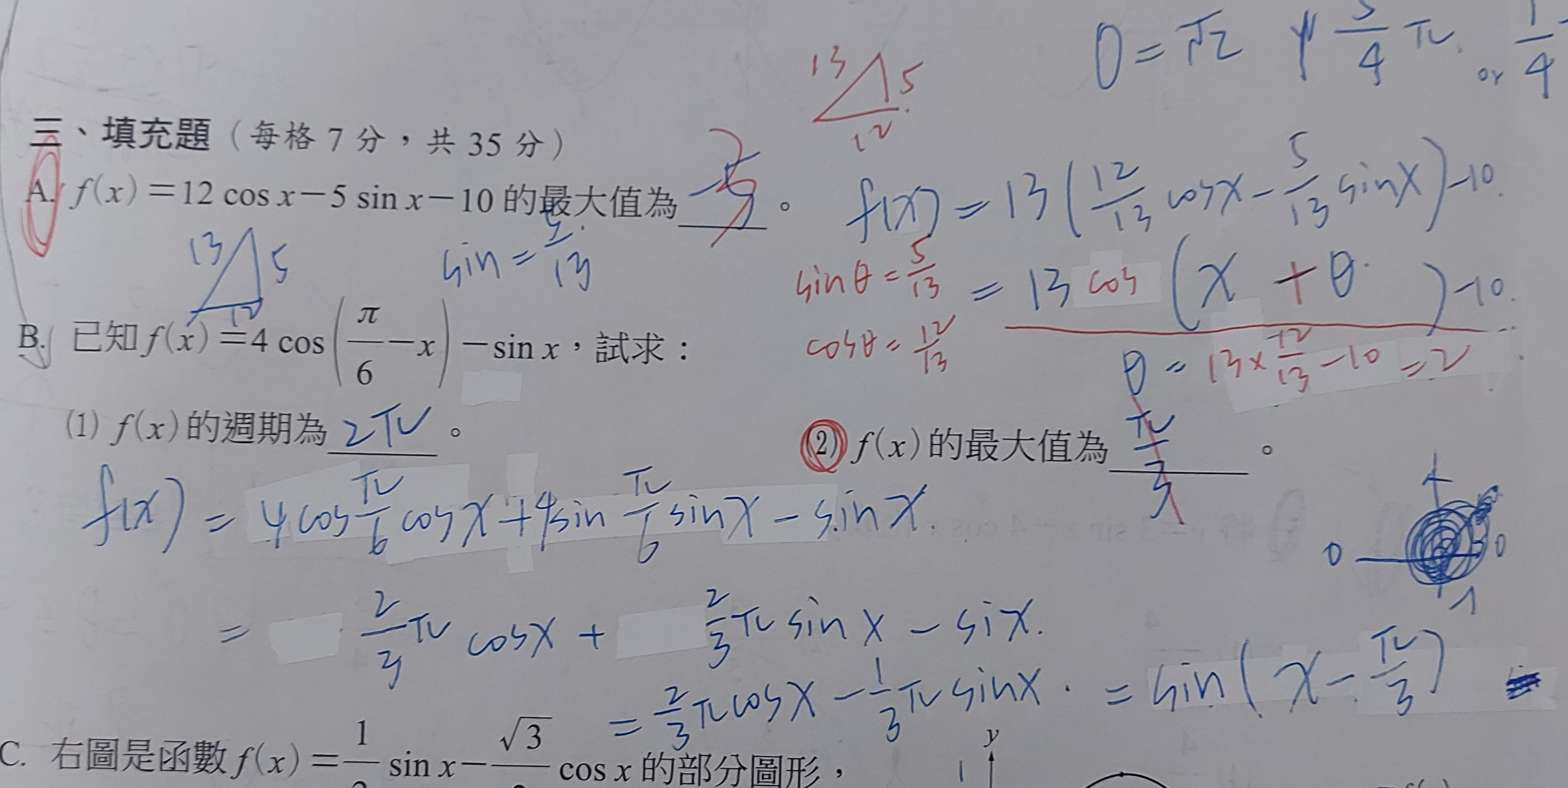 θ = π/2 ψ 5/4 π or 1/4
13 5 12
三、填充題（每格 7 分，共 35 分）
A. f(x)＝12 cos x－5 sin x－10 的最大值為 。
f(x) = 13(12/13 cosx - 5/13 sinx) -10.
13 5 12
sin = 5/13
sinθ = 5/13
= 13 cos (x + θ) -10.
cosθ = 12/13
θ = 13 × 12/13 - 10 = 2
B. 已知 f(x)＝4 cos(π/6－x)－sin x，試求：
(1) f(x) 的週期為 2π 。
(2) f(x) 的最大值為 π/3 。
f(x) = 4cos π/6 cosx + 4sin π/6 sinx - sinx.
0 0
= 2/3 π cosx + 2/3 π sinx - six.
= 2/3 π cosx - 1/3 π sinx. = sin(x - π/3)
C. 右圖是函數 f(x)＝1/ sin x－√3/ cos x 的部分圖形，
y
1